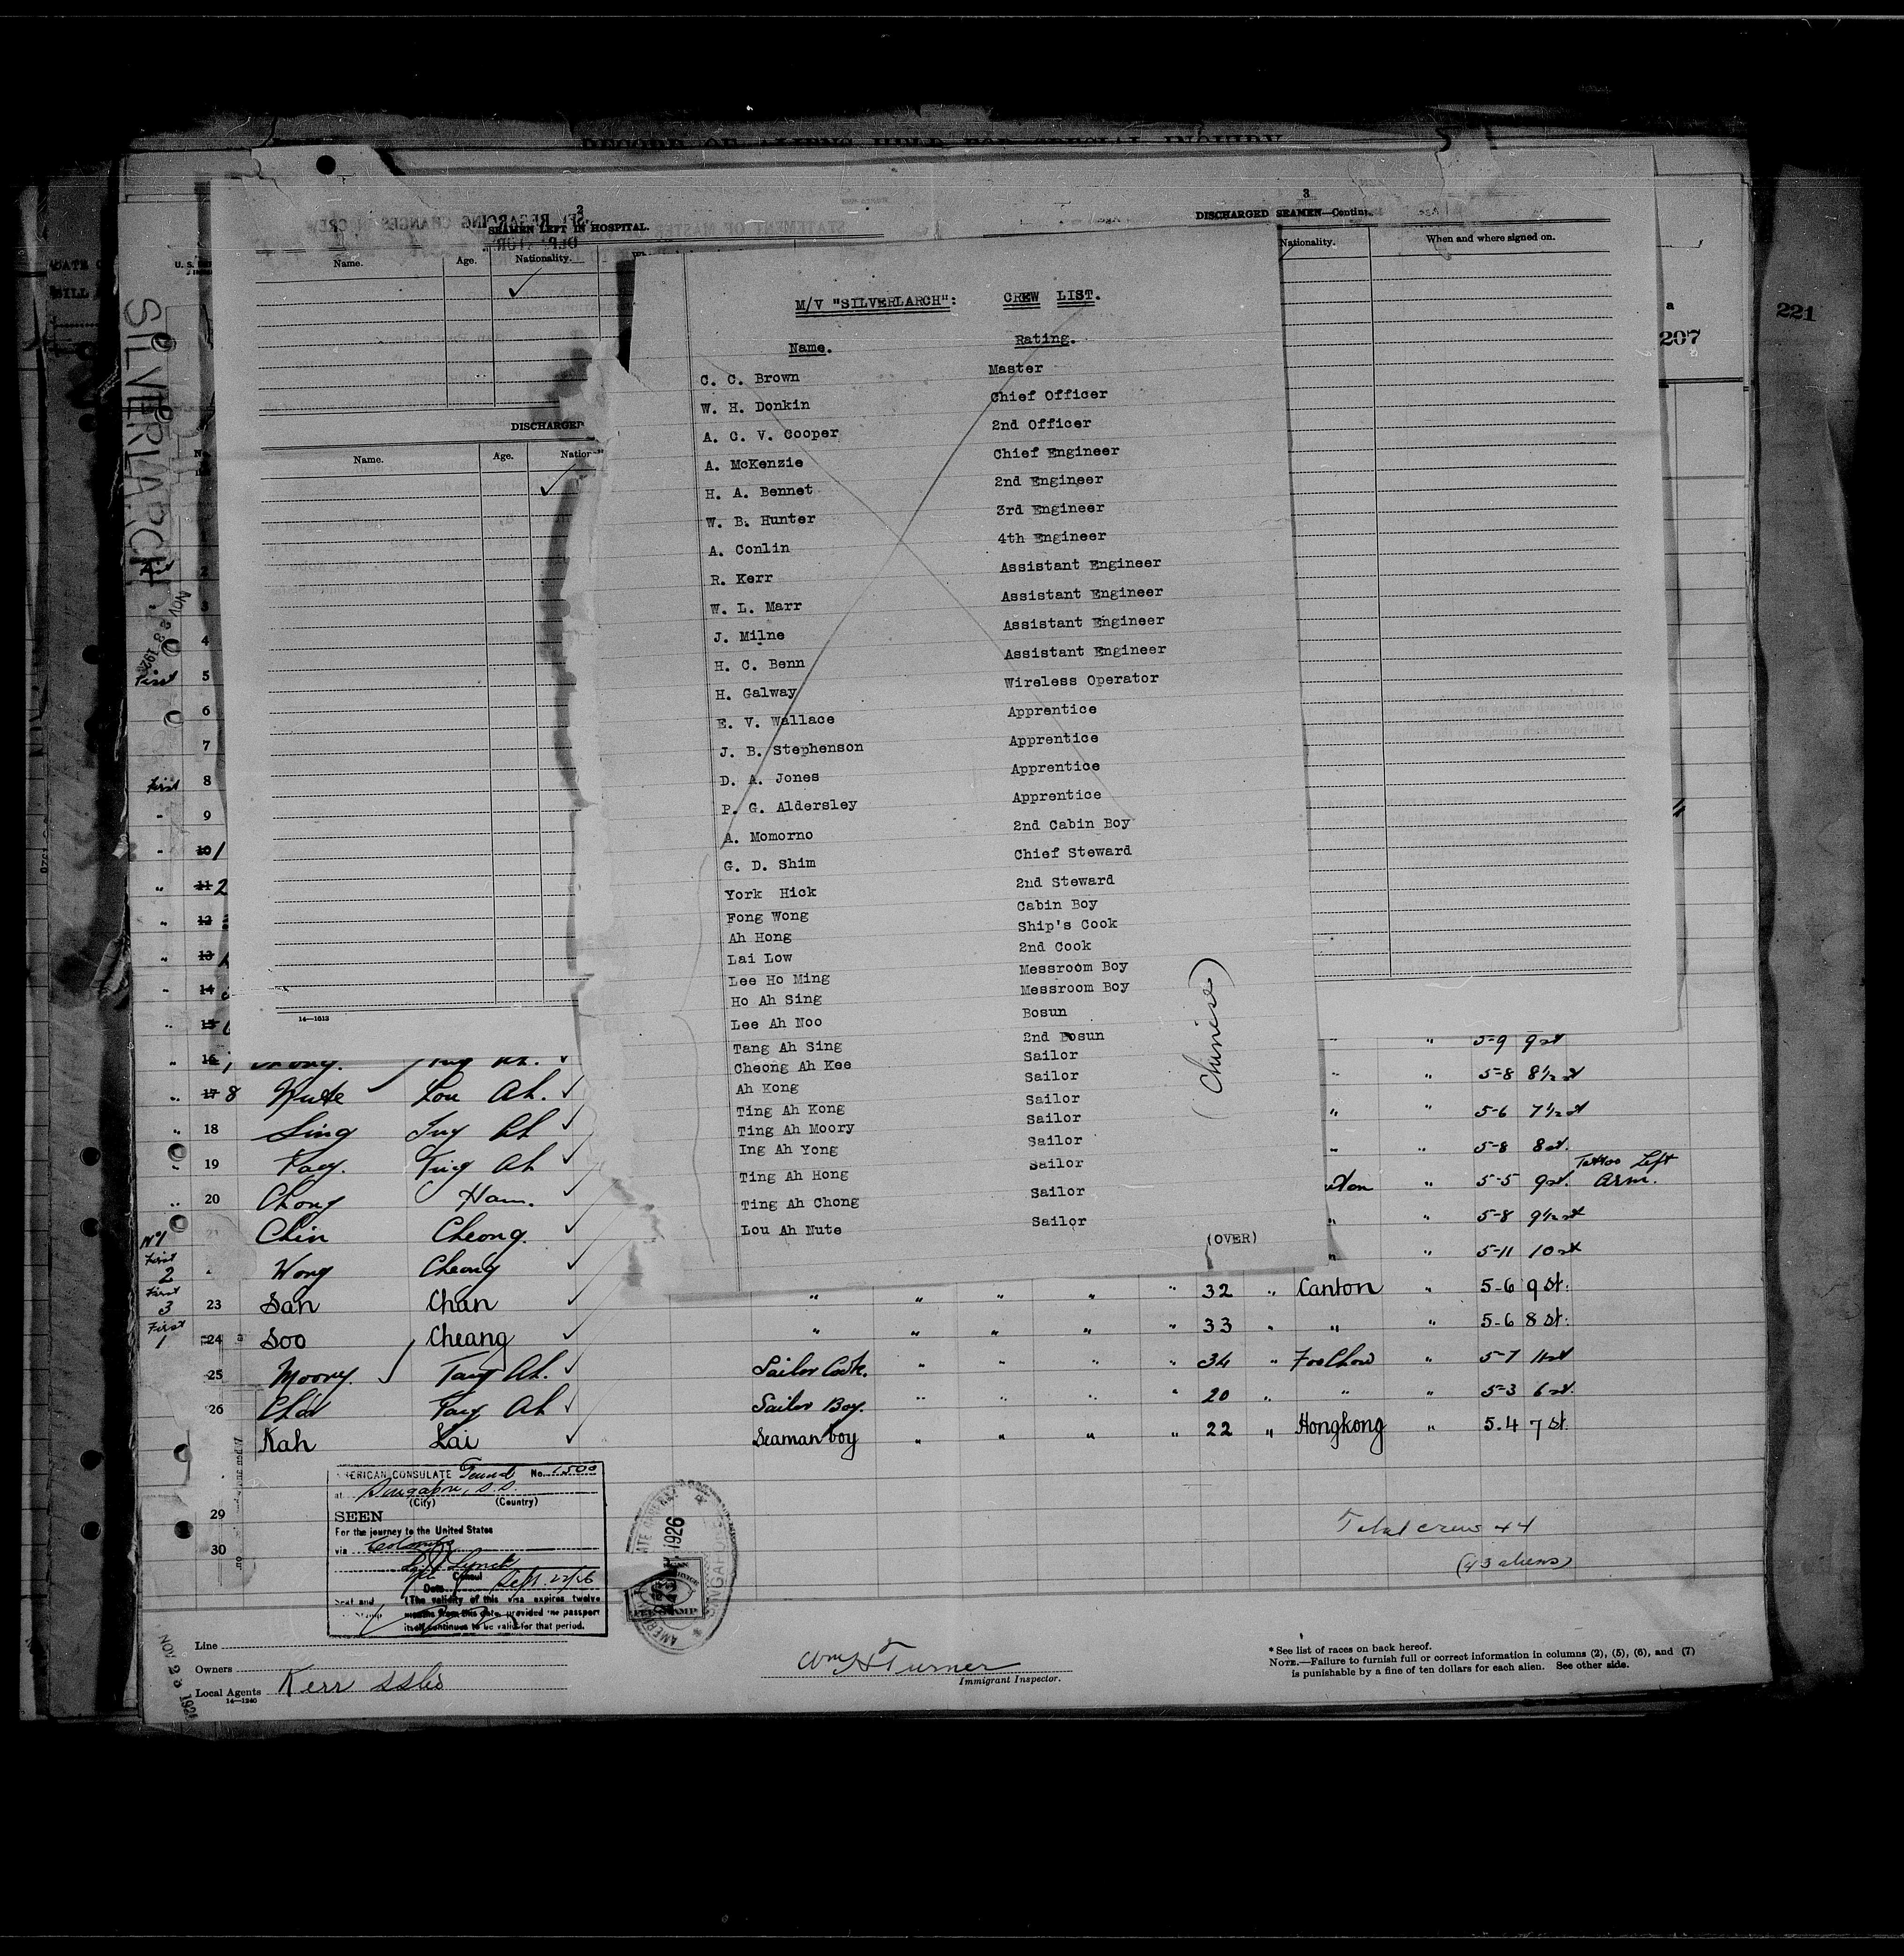 221
207
3
DISCHARGED SEAMEN—Contin
Nationality.
When and where signed on.
2
SEAMEN LEFT IN HOSPITAL.
Name.
Age.
Nationality.
DISCHARGED
Name.
Age.
Nation
14—1013
SILVERLARCH
M/V "SILVERLARCH": CREW LIST.
Name. Rating.
C. C. Brown Master
W. H. Donkin Chief Officer
A. C. V. Cooper 2nd Officer
A. McKenzie Chief Engineer
H. A. Bennet 2nd Engineer
W. B. Hunter 3rd Engineer
A. Conlin 4th Engineer
R. Kerr Assistant Engineer
W. L. Marr Assistant Engineer
J. Milne Assistant Engineer
H. C. Benn Assistant Engineer
H. Galway Wireless Operator
E. V. Wallace Apprentice
J. B. Stephenson Apprentice
D. A. Jones Apprentice
P. G. Aldersley Apprentice
A. Momorno 2nd Cabin Boy
G. D. Shim Chief Steward
York Hick 2nd Steward
Fong Wong Cabin Boy
Ah Hong Ship's Cook
Lai Low 2nd Cook
Lee Ho Ming Messroom Boy
Ho Ah Sing Messroom Boy
Lee Ah Noo Bosun
Tang Ah Sing 2nd Bosun
Cheong Ah Kee Sailor
Ah Kong Sailor
Ting Ah Kong Sailor
Ting Ah Moory Sailor
Ing Ah Yong Sailor
Ting Ah Hong Sailor
Ting Ah Chong Sailor
Lou Ah Mute Sailor
(Chinise)
(OVER)
2
3
4
First 5
6
7
First 8
" 9
" 10 1
" 11 2
" 12
" 13
" 14
" 15
" 16 " 5-9 9 st
" 17 8 Mute Lou Ah. " 5-8 8½ st
" 18 Sing Ah " 5-6 7½ st
19 Ting Ah " 5-8 8 st.
" 20 Chong Ham. " 5-5 9 st. Tattoo Left Arm.
No 1 Chin Cheong. " 5-8 9½ st
First 2 Wong Cheong " 5-11 10 st
First 3 23 San Chan " " " " " 32 " Canton " 5-6 9 St.
First 1 24 Soo Cheang " " " " " 33 " " " 5-6 8 St.
25 Moory. Ah. Sailor Cook. " " " " 34 " FooChow " 5-7 11 st
26 Ah Sailor Boy. " " " " 20 " " " 5-3 6 st.
Kah Lai Seaman boy " " " " 22 " Hongkong " 5.4 7 St.
29
30
AMERICAN CONSULATE No. 1500
at Singapore, S.S.
(City) (Country)
SEEN
For the journey to the United States
via Colombo
Lynch
Consul
Date Sept. 22/26
Seal and (The validity of this visa expires twelve
Stamp months from this date, provided the passport
itself continues to be valid for that period.
1926
SINGAPORE
Total crew 44
(43 aliens)
Line
Owners
Local Agents Kerr SS Co
14—1240
Wm H Turner
Immigrant Inspector.
* See list of races on back hereof.
NOTE.—Failure to furnish full or correct information in columns (2), (5), (6), and (7)
is punishable by a fine of ten dollars for each alien. See other side.
NOV 23 1926